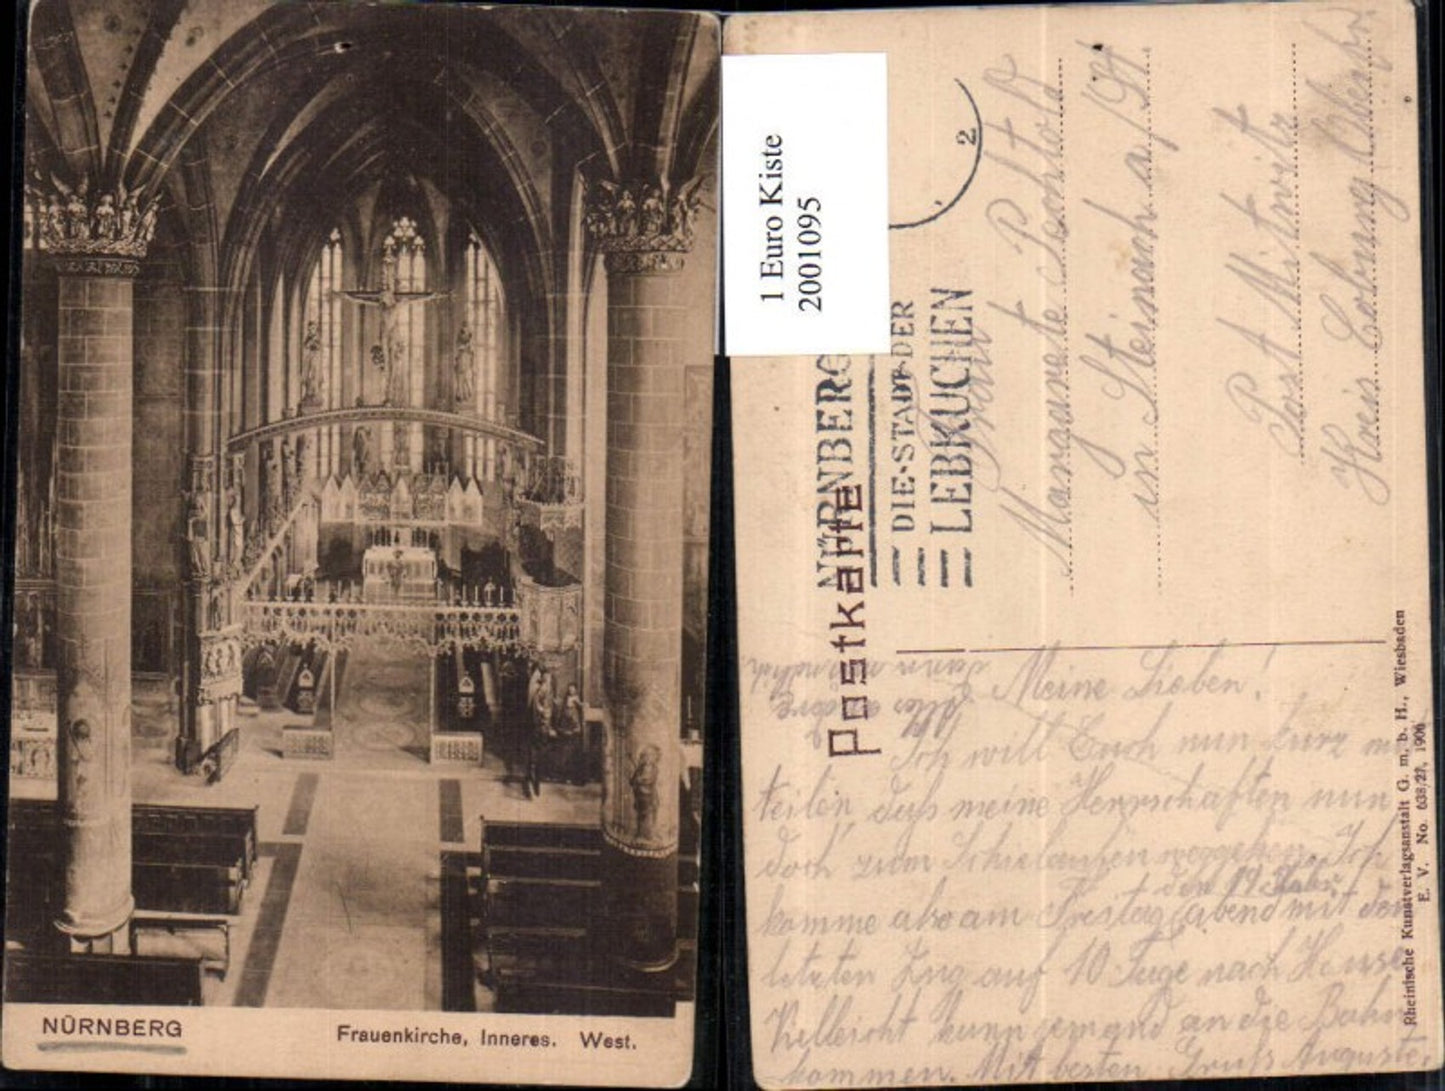 NÜRNBERG
Frauenkirche, Inneres. West.
1 Euro Kiste
2001095
2
NÜRNBERG
DIE·STADT·DER
LEBKUCHEN
Postkarte
Frau
Margarete Pechtold
in Steinach a/St
Post Mitwitz
Kreis Coburg Oberfr.
Meine Lieben!
Ich will Euch nun kurz mit
teilen, daß meine Herrschaften nun
doch zum Schielaufen weggehen. Ich
den 19.
komme also am Freitag abend mit den
letzten Zug auf 10 Tage nach Hause
Vielleicht kann jemand an die Bahn
kommen. Mit besten Gruß Auguste.
Alles andere
dann
Rheinische Kunstverlagsanstalt G. m. b. H., Wiesbaden
E. V. No. 638/27, 1906